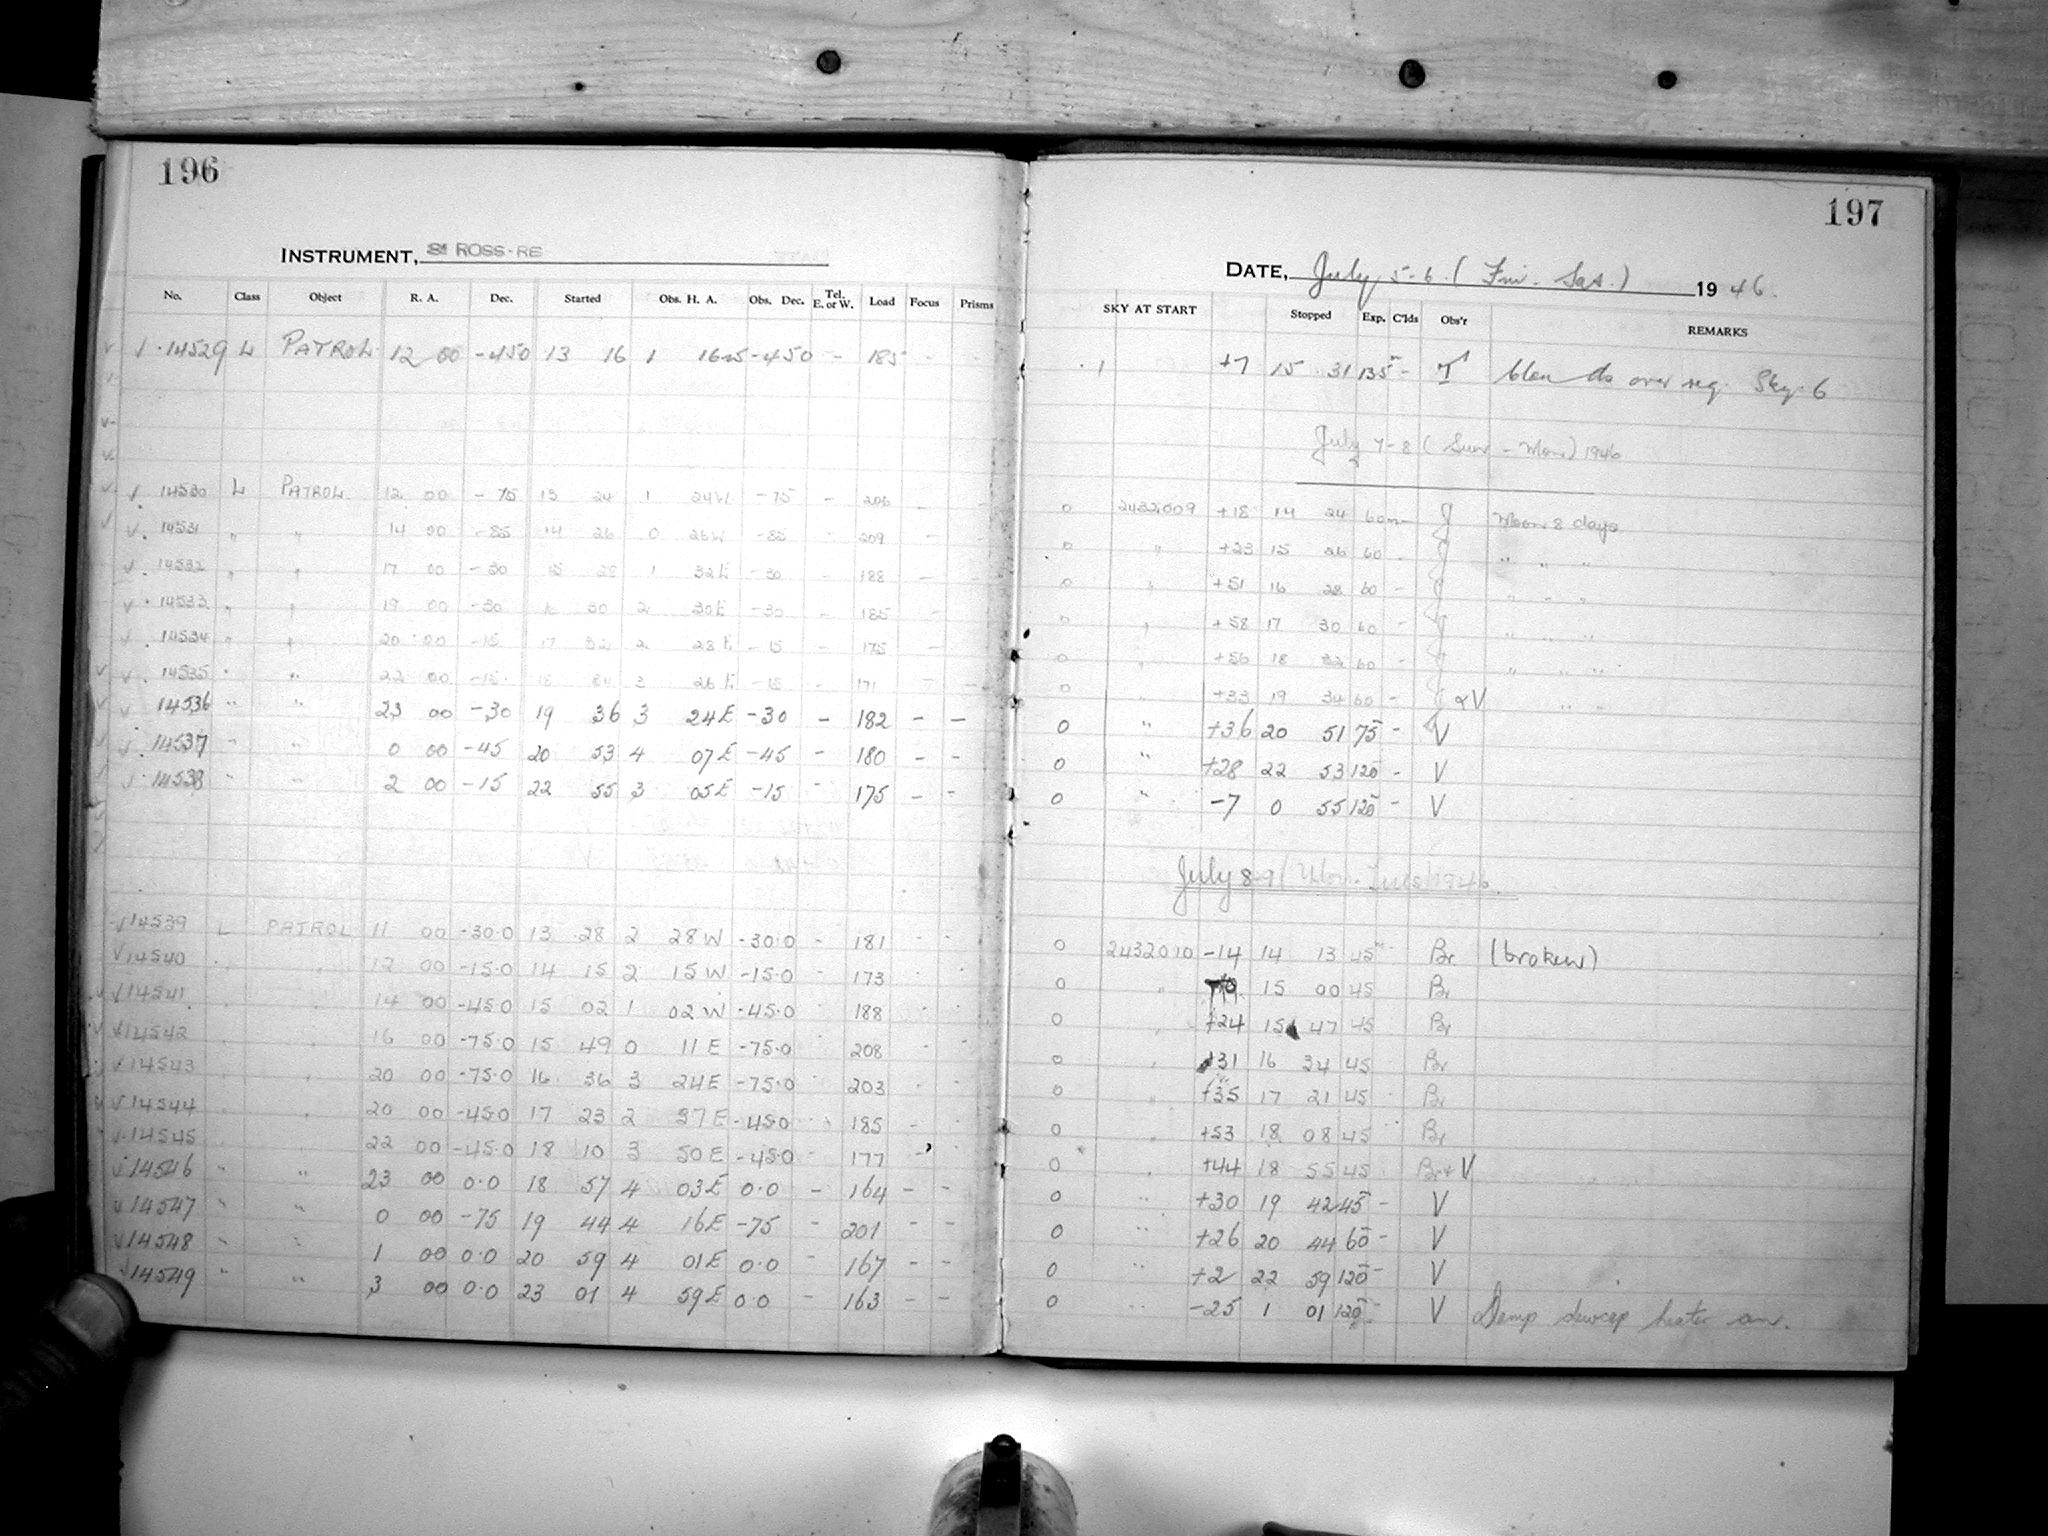 196
INSTRUMENT, ROSS-RE
No. Class Object R. A. Dec. Started Obs. H. A. Obs. Dec. Tel. E. or W. Load Focus Prisms
√ 14529 L PATROL 12 00 -45.0 13 16 1 16 -45.0 - 185
√ 14530 L PATROL 12 00 -75 13 24 1 24W -75 - 206 - -
√ 14531 " " 14 00 -85 14 26 0 26W -85 - 209 - -
√ 14532 " " 17 00 -30 15 28 1 32E -30 - 188 - -
√ 14533 " " 19 00 -30 16 30 2 30E -30 - 185 - -
√ 14534 " " 20 00 -15 17 32 2 28E -15 - 175 -
√ 14535 " " 22 00 -15 18 34 3 26E -15 - 171 - -
√ 14536 " " 23 00 -30 19 36 3 24E -30 - 182 - -
√ 14537 " " 0 00 -45 20 53 4 07E -45 - 180 - -
√ 14538 " " 2 00 -15 22 55 3 05E -15 - 175 - -
√ 14539 L PATROL 11 00 -30.0 13 28 2 28W -30.0 - 181 - -
√ 14540 " " 12 00 -15.0 14 15 2 15W -15.0 - 173 - -
√ 14541 " " 14 00 -45.0 15 02 1 02W -45.0 - 188 - -
√ 14542 " " 16 00 -75.0 15 49 0 11E -75.0 - 208 - -
√ 14543 " " 20 00 -75.0 16 36 3 24E -75.0 - 203 - -
√ 14544 " " 20 00 -45.0 17 23 2 37E -45.0 - 185 - -
√ 14545 " " 22 00 -45.0 18 10 3 50E -45.0 - 177 - -
√ 14546 " " 23 00 0.0 18 57 4 03E 0.0 - 164 - -
√ 14547 " " 0 00 -75 19 44 4 16E -75 - 201 - -
√ 14548 " " 1 00 0.0 20 59 4 01E 0.0 - 167 - -
√ 14549 " " 3 00 0.0 23 01 4 59E 0.0 - 163 - -
197
DATE, July 5-6 (Fri. Sat.) 1946.
SKY AT START Stopped Exp. C'lds Obs'r REMARKS
1 +7 15 31 135 - over Sky 6
July 7-8 (Sun - Mon) 1946
0 2432009 +18 14 24 60m - J Moon 8 days
0 " +23 15 26 60 - J " " "
0 " +51 16 28 60 - J " " "
0 " +58 17 30 60 - J " " "
0 " +56 18 32 60 - J " " "
0 " +33 19 34 60 - J & V " "
0 " +36 20 51 75 - V
0 " +28 22 53 120 - V
0 " -7 0 55 120 - V
July 8-9 (Mon. Tues) 1946.
0 2432010 -14 14 13 45 Br (broken)
0 " 15 00 45 Br
0 " +24 15 47 45 Br
0 " +31 16 34 45 Br
0 " +35 17 21 45 Br
0 " +53 18 08 45 Br
0 " +44 18 55 45 Br + V
0 " +30 19 42 45 - V
0 " +26 20 44 60 - V
0 " +2 22 59 120 - V
0 " -25 1 01 120 - V Damp dewcap heater on.